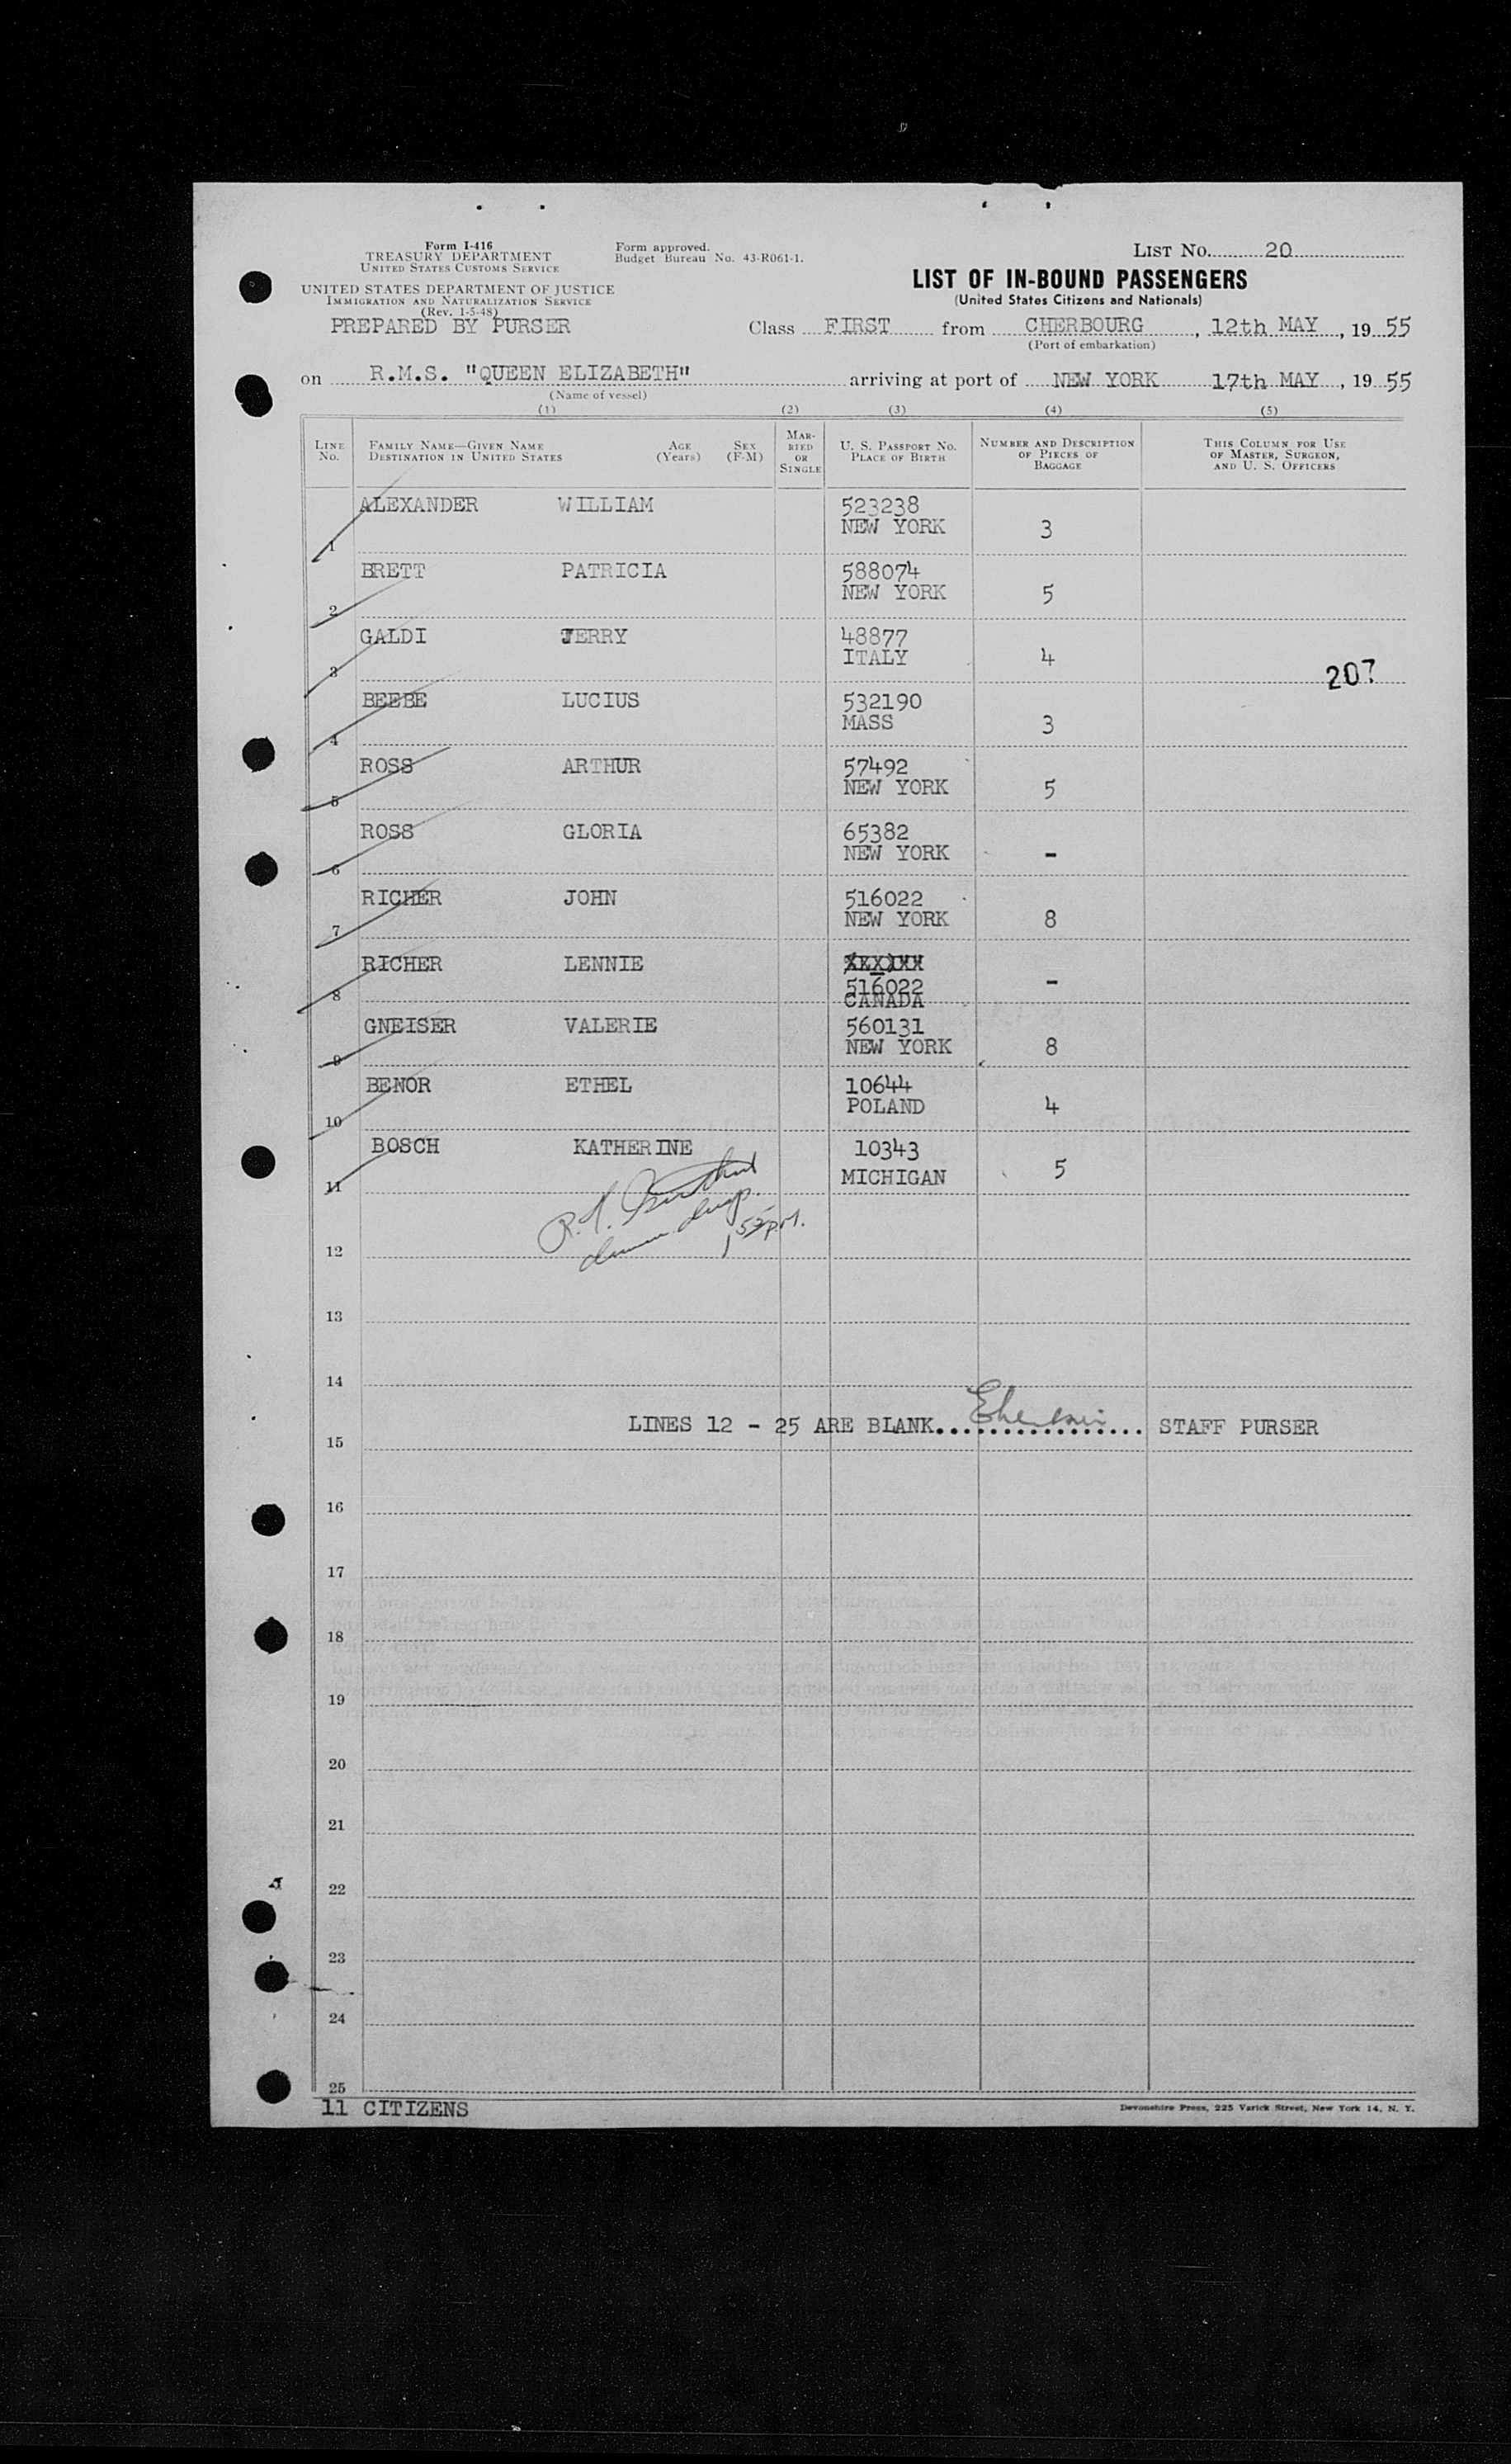 Form I-416
TREASURY DEPARTMENT
UNITED STATES CUSTOMS SERVICE
UNITED STATES DEPARTMENT OF JUSTICE
IMMIGRATION AND NATURALIZATION SERVICE
(Rev. 1-5-48)
PREPARED BY PURSER
Form approved.
Budget Bureau No. 43-R061-1.
LIST NO. 20
LIST OF IN-BOUND PASSENGERS
(United States Citizens and Nationals)
Class FIRST from CHERBOURG, 12th MAY, 19 55
(Port of embarkation)
on R.M.S. "QUEEN ELIZABETH" arriving at port of NEW YORK 17th MAY, 19 55
(Name of vessel)
(1) (2) (3) (4) (5)
LINE No. FAMILY NAME—GIVEN NAME DESTINATION IN UNITED STATES AGE (Years) SEX (F-M) MARRIED OR SINGLE U. S. PASSPORT NO. PLACE OF BIRTH NUMBER AND DESCRIPTION OF PIECES OF BAGGAGE THIS COLUMN FOR USE OF MASTER, SURGEON, AND U. S. OFFICERS
ALEXANDER WILLIAM 523238
1 NEW YORK 3
BRETT PATRICIA 588074
2 NEW YORK 5
GALDI JERRY 48877
3 ITALY 4
207
BEEBE LUCIUS 532190
4 MASS 3
ROSS ARTHUR 57492
5 NEW YORK 5
ROSS GLORIA 65382
6 NEW YORK -
RICHER JOHN 516022
7 NEW YORK 8
RICHER LENNIE
8 516022 -
CANADA
GNEISER VALERIE 560131
9 NEW YORK 8
BENOR ETHEL 10644
10 POLAND 4
BOSCH KATHERINE 10343
11 MICHIGAN 5
12
13
14
LINES 12 - 25 ARE BLANK................ STAFF PURSER
15
16
17
18
19
20
21
22
23
24
25
11 CITIZENS
Devonshire Press, 225 Varick Street, New York 14, N. Y.